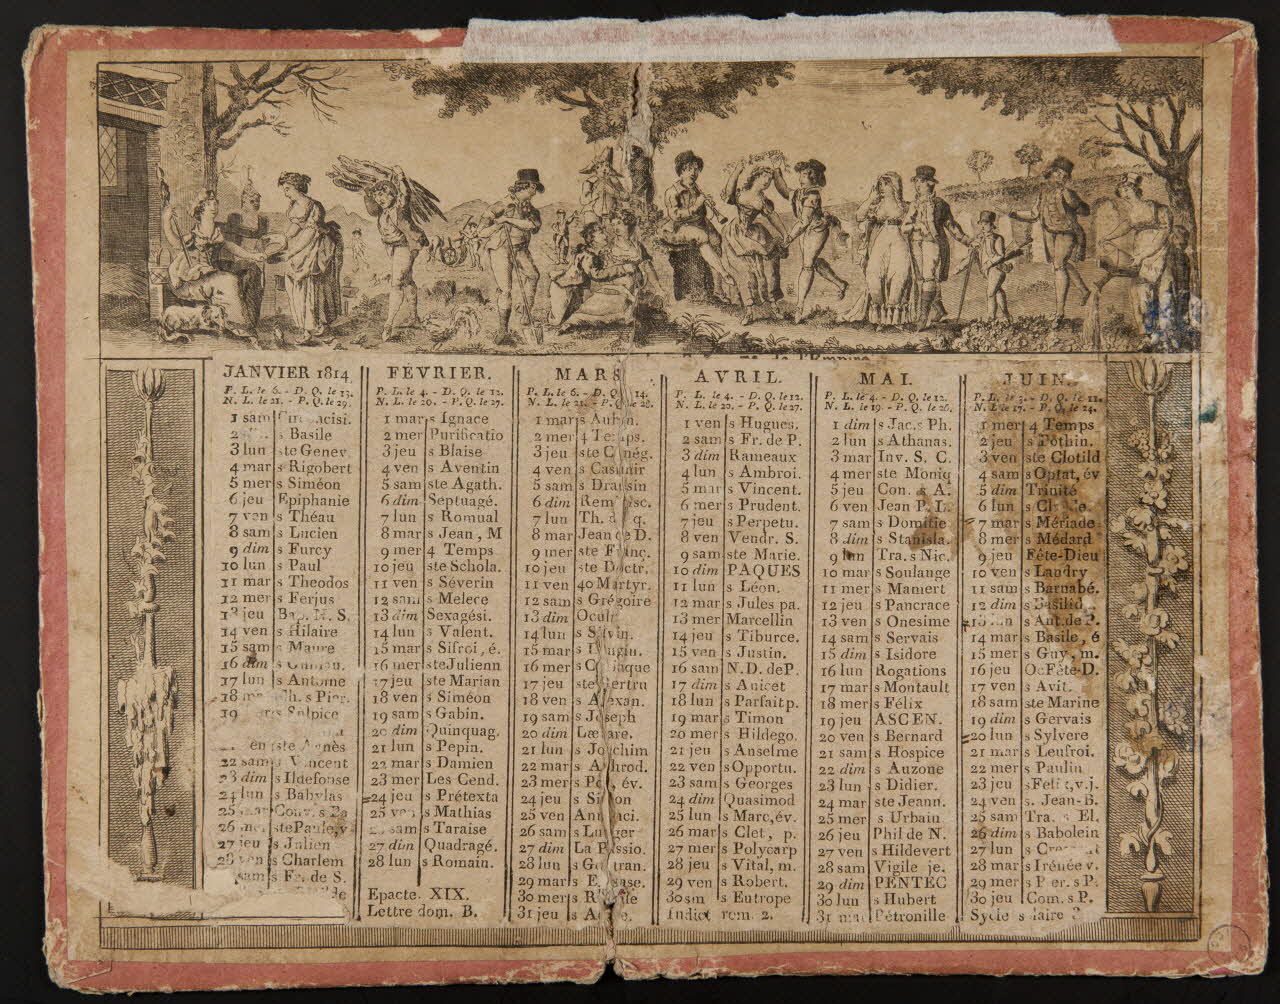 de l'Empire
JANVIER 1814.
P. L. le 6. - D. Q. le 13.
N. L. le 21. - P. Q. le 29.
1 sam
2 s Basile
3 lun ste Genev.
4 mar s Rigobert
5 mer s Siméon
6 jeu Epiphanie
7 ven s Théau
8 sam s Lucien
9 dim s Furcy
10 lun s Paul
11 mar s Theodos
12 mer s Ferjus
13 jeu Bap. N. S.
14 ven s Hilaire
15 sam s Maure
16 dim s
17 lun s Antoine
18 s Pier.
19 s Sulpice
ste Agnès
22 sam s Vincent
23 dim s Ildefonse
24 lun s Babylas
25 mar Conv. s Pa
26 mer ste Paule, v
27 jeu s Julien
28 ven s Charlem
sam s Fr. de S.
FÉVRIER.
P. L. le 4. - D. Q. le 12.
N. L. le 20. - P. Q. le 27.
1 mar s Ignace
2 mer Purificatio
3 jeu s Blaise
4 ven s Aventin
5 sam ste Agath.
6 dim Septuagé.
7 lun s Romual
8 mar s Jean, M
9 mer 4 Temps
10 jeu ste Schola.
11 ven s Séverin
12 sam s Melece
13 dim Sexagési.
14 lun s Valent.
15 mar s Sifroi, é.
16 mer ste Julienn
17 jeu ste Marian
18 ven s Siméon
19 sam s Gabin.
20 dim Quinquag.
21 lun s Pepin.
22 mar s Damien
23 mer Les Cend.
24 jeu s Prétexta
25 ven s Mathias
sam s Taraise
27 dim Quadragé.
28 lun s Romain.
Epacte. XIX.
Lettre dom. B.
MARS
P. L. le 6. - D. Q. 14.
N. L. le 21. - P. Q. le 28.
1 mar s Aubin.
2 mer 4 Temps.
3 jeu ste
4 ven s Casimir
5 sam s Drausin
6 dim
7 lun Th.
8 mar Jean de D.
9 mer ste Franç.
10 jeu ste Doctr.
11 ven 40 Martyr.
12 sam s Grégoire
13 dim Oculi
14 lun s
15 mar s
16 mer
17 jeu ste
18 ven s Alexan.
19 sam s Joseph
20 dim Lætare.
21 lun s Joachim
22 mar s
23 mer s
24 jeu s Simon
25 ven
26 sam s
27 dim La Passio.
28 lun s Gontran.
29 mar s
30 mer s
31 jeu s
AVRIL.
P. L. le 4. - D. Q. le 12.
N. L. le 20. - P. Q. le 27.
1 ven s Hugues.
2 sam s Fr. de P.
3 dim Rameaux
4 lun s Ambroi.
5 mar s Vincent.
6 mer s Prudent.
7 jeu s Perpetu.
8 ven Vendr. S.
9 sam ste Marie.
10 dim PAQUES
11 lun s Léon.
12 mar s Jules pa.
13 mer Marcellin
14 jeu s Tiburce.
15 ven s Justin.
16 sam N. D. de P.
17 dim s Anicet
18 lun s Parfait p.
19 mar s Timon
20 mer s Hildego.
21 jeu s Anselme
22 ven s Opportu.
23 sam s Georges
24 dim Quasimod
25 lun s Marc, év.
26 mar s Clet, p.
27 mer s Polycarp
28 jeu s Vital, m.
29 ven s Robert.
30 sm s Eutrope
Indict rom. 2.
MAI.
P. L. le 4. - D. Q. le 12.
N. L. le 19. - P. Q. le 26.
1 dim s Jac. s Ph.
2 lun s Athanas.
3 mar Inv. S. C.
4 mer ste Moniq
5 jeu Con. s A.
6 ven Jean P. L.
7 sam s Domitie
8 dim s Stanisla.
9 lun Tra. s Nic.
10 mar s Soulange
11 mer s Mamert
12 jeu s Pancrace
13 ven s Onesime
14 sam s Servais
15 dim s Isidore
16 lun Rogations
17 mar s Montault
18 mer s Félix
19 jeu ASCEN.
20 ven s Bernard
21 sam s Hospice
22 dim s Auzone
23 lun s Didier.
24 mar ste Jeann.
25 mer s Urbain
26 jeu Phil de N.
27 ven s Hildevert
28 sam Vigile je.
29 dim PENTEC
30 lun s Hubert
31 mar Pétronille
JUIN.
P. L. le 3. - D. Q. le 11.
N. L. le 17. - P. Q. le 24.
1 mer 4 Temps
2 jeu s Pothin.
3 ven ste Clotild
4 sam s Optat, év
5 dim Trinité
6 lun s
7 mar s Mériade
8 mer s Médard
9 jeu Fête-Dieu
10 ven s Landry
11 sam s Barnabé.
12 dim s Basilid
lun s Ant. de P.
14 mar s Basile, é
15 mer s Guy, m.
16 jeu Oc Fête-D.
17 ven s Avit.
18 sam ste Marine
19 dim s Gervais
20 lun s Sylvere
21 mar s Leufroi.
22 mer s Paulin
23 jeu s Felix, v.j.
24 ven s. Jean-B.
25 sam Tra. s El.
26 dim s Babolein
27 lun s
28 mar s Irénée v.
29 mer s Pier. s P.
30 jeu Com. s P.